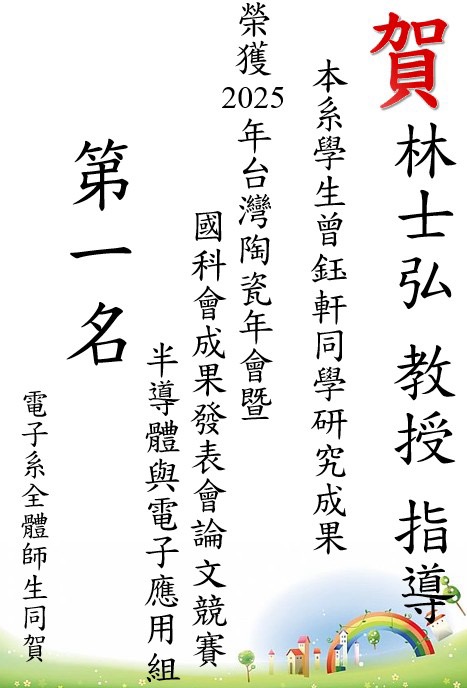 賀 林士弘 教授 指導
本系學生曾鈺軒同學研究成果
榮獲2025年台灣陶瓷年會暨
國科會成果發表會論文競賽
半導體與電子應用組
第一名
電子系全體師生同賀